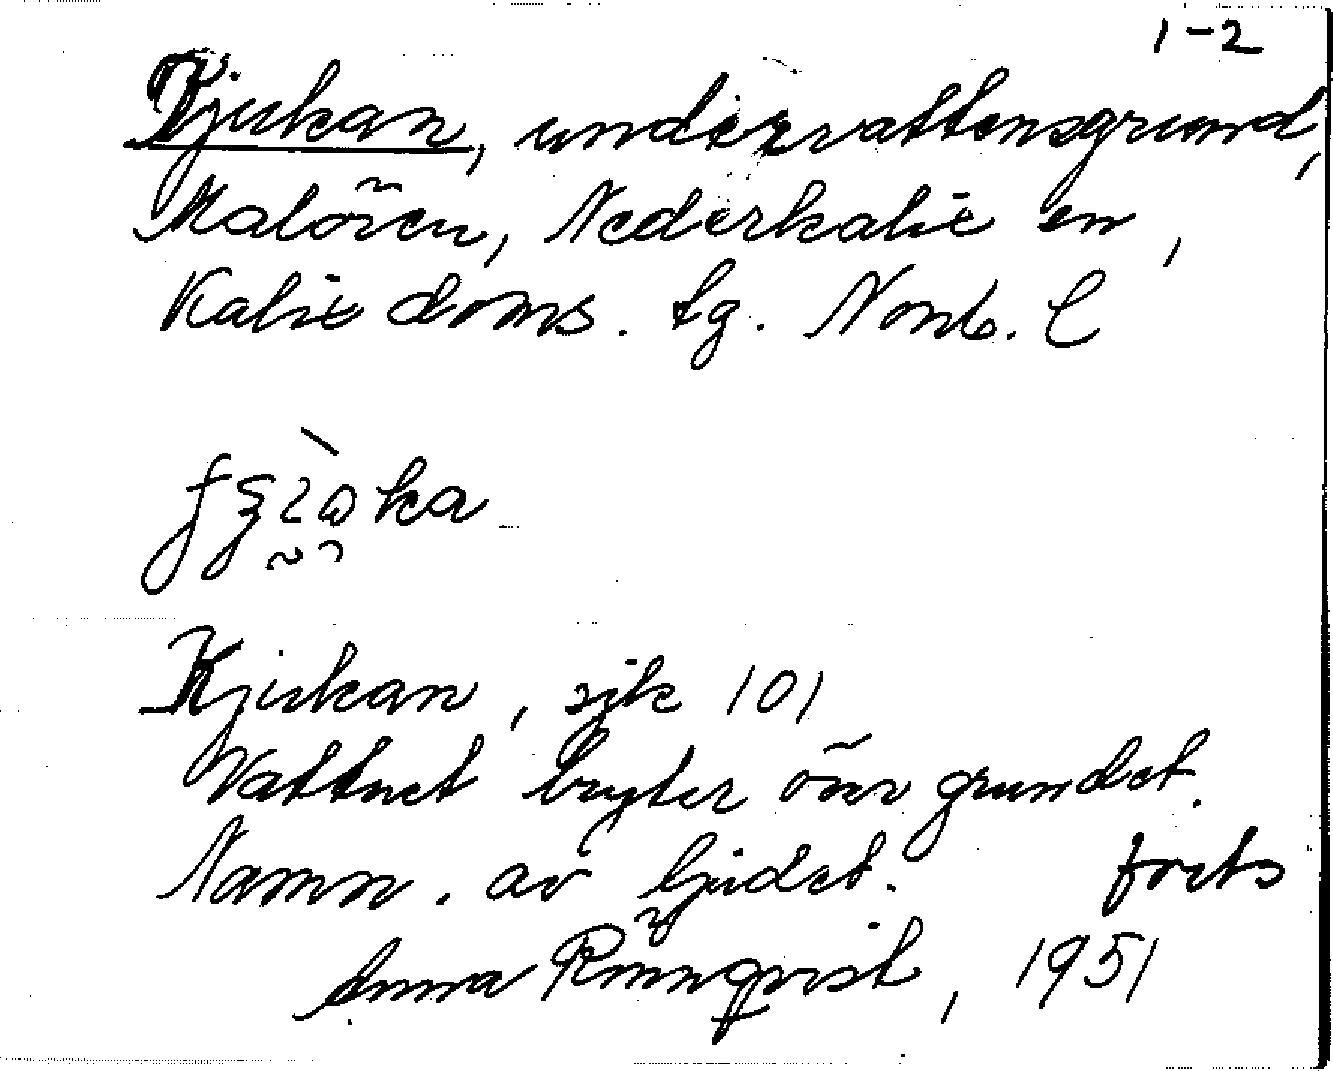 1-2
Kjukan, undervattensgrund,
Malören, Nederkalix en,
Kalix doms. tg. Norrb. l
Kjukan, sjk 101
Vattnet bryter över grundet.
Namn. av ljudet. forts
Anna Rönnqvist, 1951